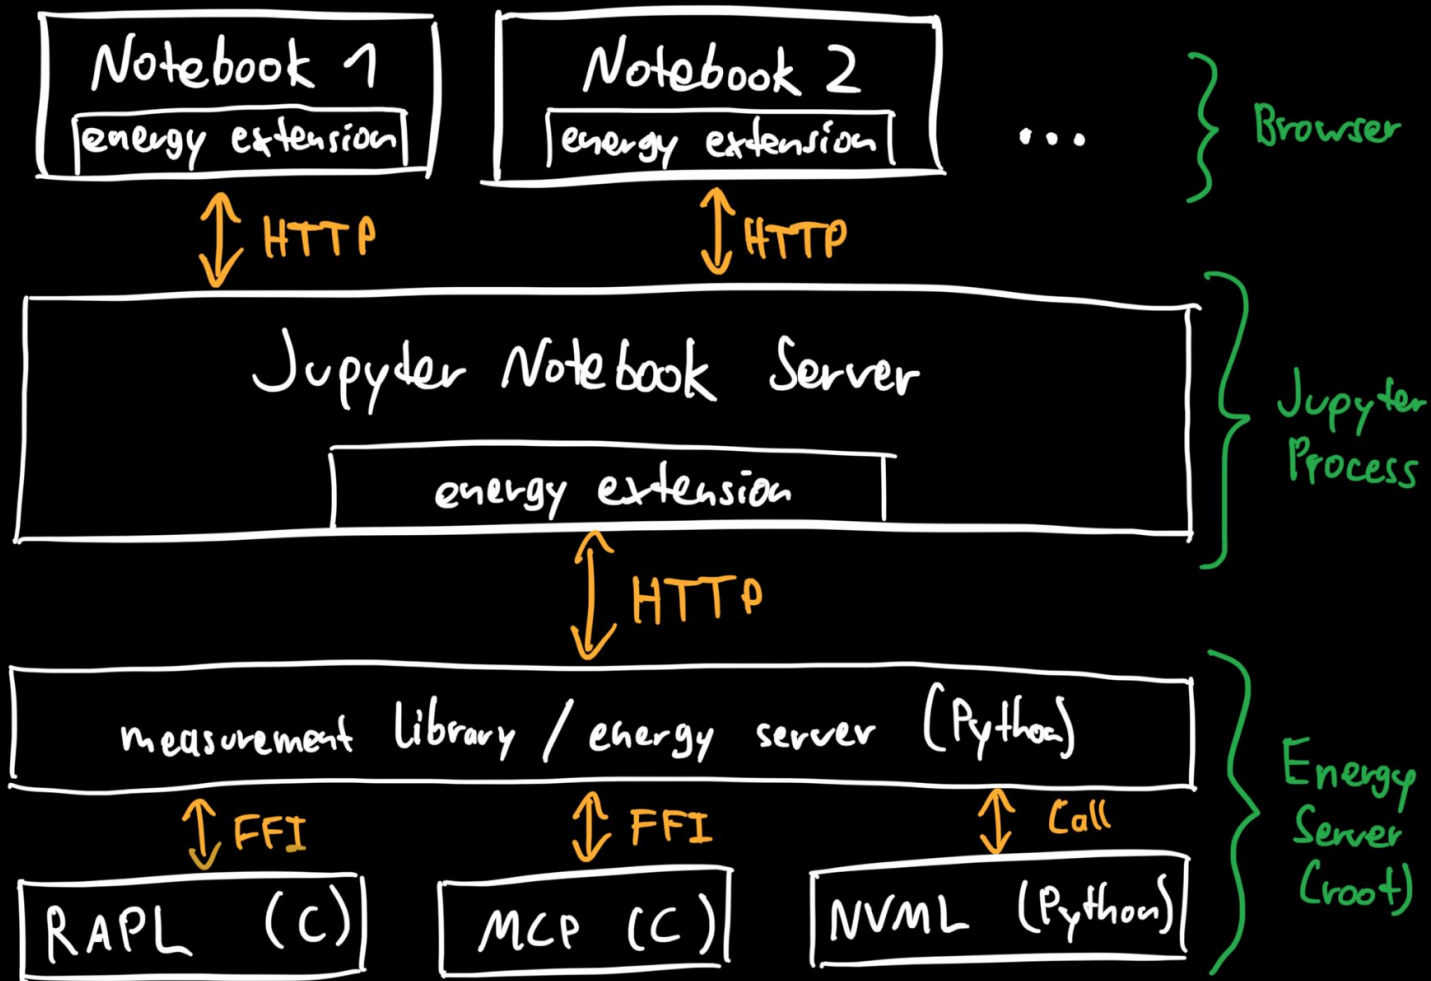 Notebook 1
energy extension
Notebook 2
energy extension
...
Browser
HTTP
HTTP
Jupyter Notebook Server
energy extension
Jupyter
Process
HTTP
measurement library / energy server (Python)
FFI
FFI
Call
RAPL (C)
MCP (C)
NVML (Python)
Energy
Server
(root)